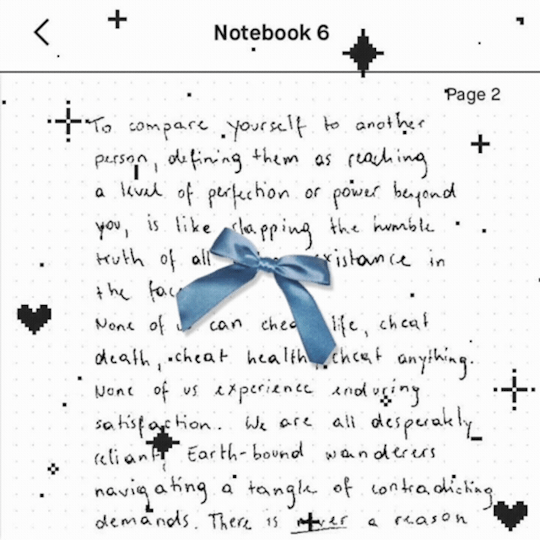 Notebook 6
Page 2
To compare yourself to another
person, defining them as reaching
a level of perfection or power beyond
you, is like slapping the humble
truth of all existance in
the face
None of us can cheat life, cheat
death, cheat health, cheat anything.
None of us experience enduring
satisfaction. We are all desperately
reliant, Earth-bound wanderers
navigating a tangle of contradicting
demands. There is never a reason